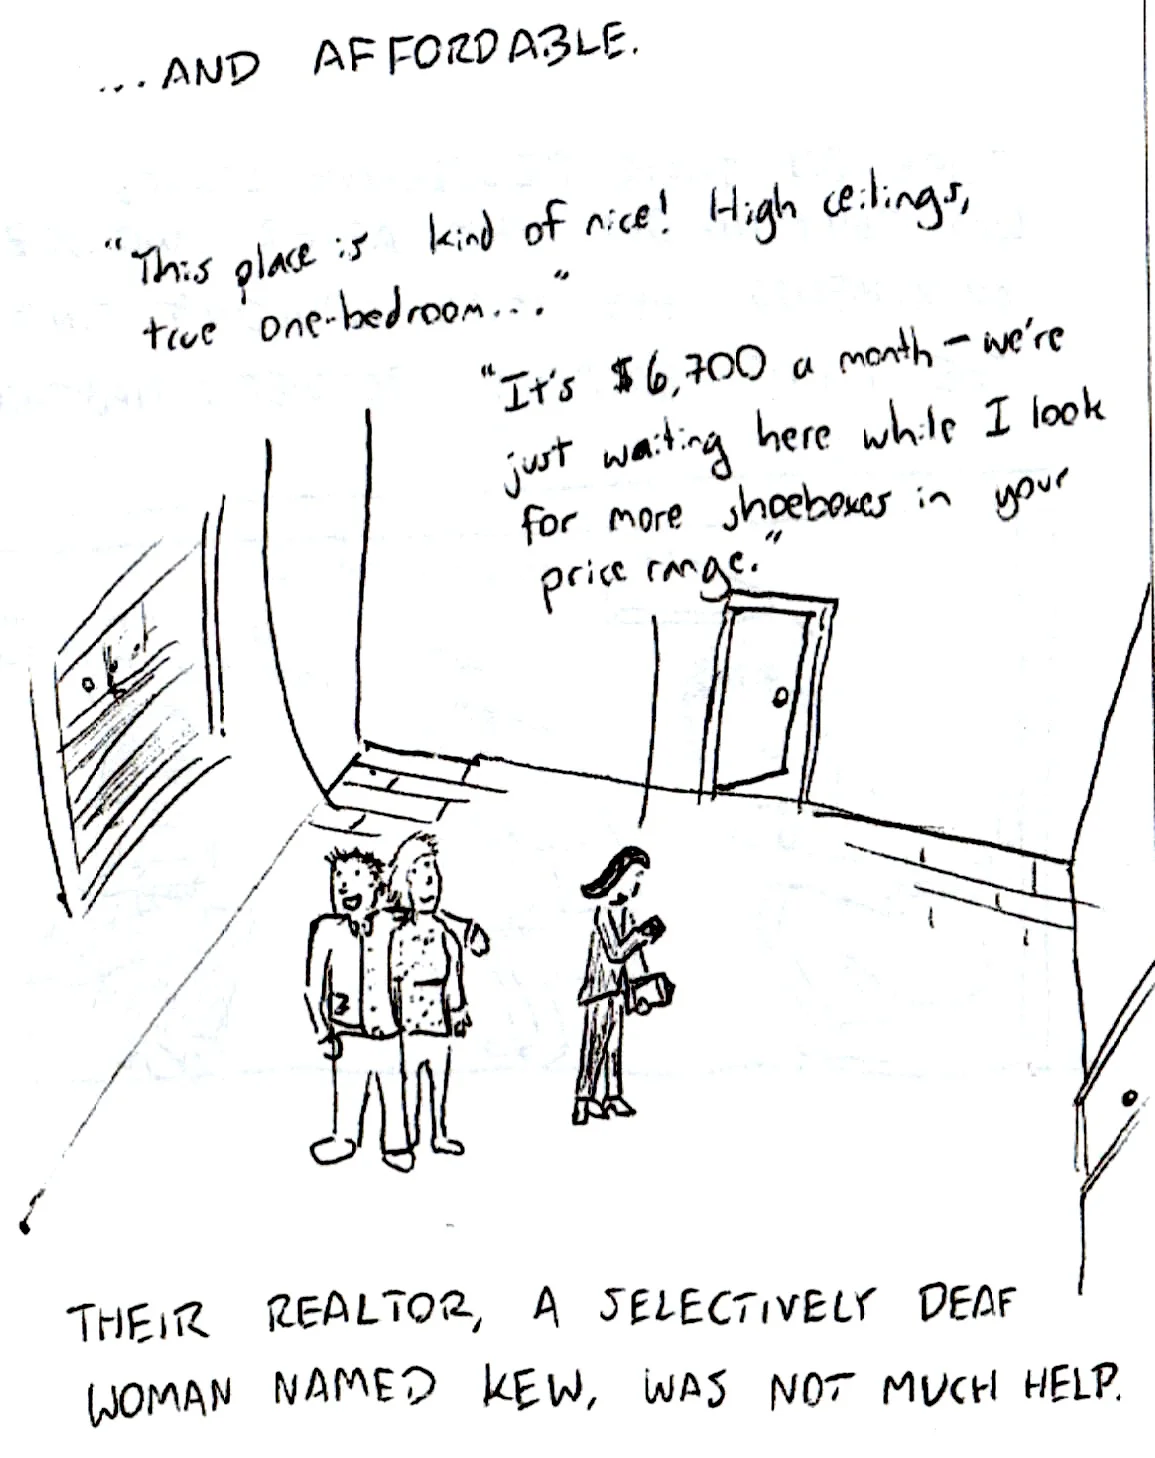 ...AND AFFORDABLE.
"This place is kind of nice! High ceilings,
true one-bedroom..."
"It's $6,700 a month - we're
just waiting here while I look
for more shoeboxes in your
price range."
THEIR REALTOR, A SELECTIVELY DEAF
WOMAN NAMED KEW, WAS NOT MUCH HELP.